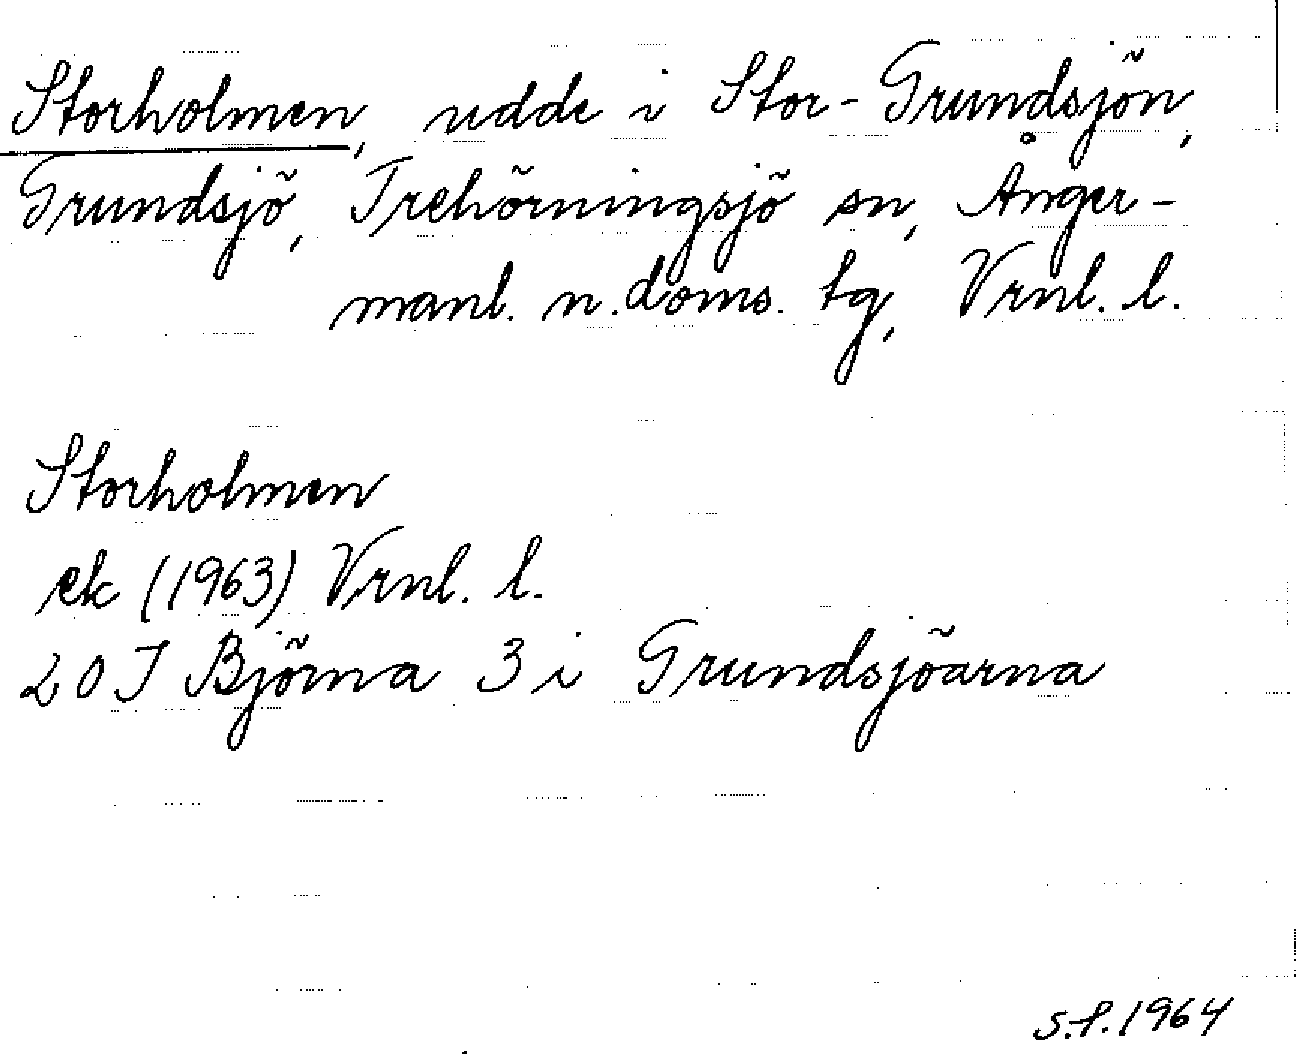 Storholmen, udde i Stor-Grundsjön,
Grundsjö, Trehörningsjö sn, Ånger-
manl. n. doms. tg, Vrnl. l.
Storholmen
ek (1963) Vrnl. l.
20J Björna 3 i Grundsjöarna
S.f. 1964